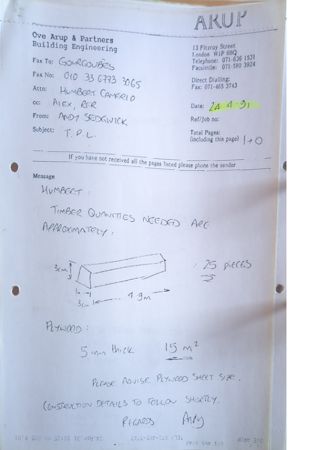 ARUP
Ove Arup & Partners
Building Engineering
13 Fitzroy Street
London W1P 6BQ
Telephone: 071-636 1531
Facsimile: 071-580 3924
Fax To: GOURGOUBES
Fax No: 010 33 6773 7065
Direct Dialling:
Fax: 071-465 3743
Attn: HUMBERT CAMERLO
cc: ALEX, RER
Date: 24.4.91
From: ANDY SEDGWICK
Ref/Job no:
Subject: T.P.L.
Total Pages:
(including this page) 1+0
If you have not received all the pages listed please phone the sender
Message
HUMBERT,
TIMBER QUANTITIES NEEDED ARE
APPROXIMATELY:
25 PIECES
3cm
3cm
4.9m
PLYWOOD:
5mm THICK 15 m²
PLEASE ADVISE PLYWOOD SHEET SIZE.
CONSTRUCTION DETAILS TO FOLLOW SHORTLY.
REGARDS Andy